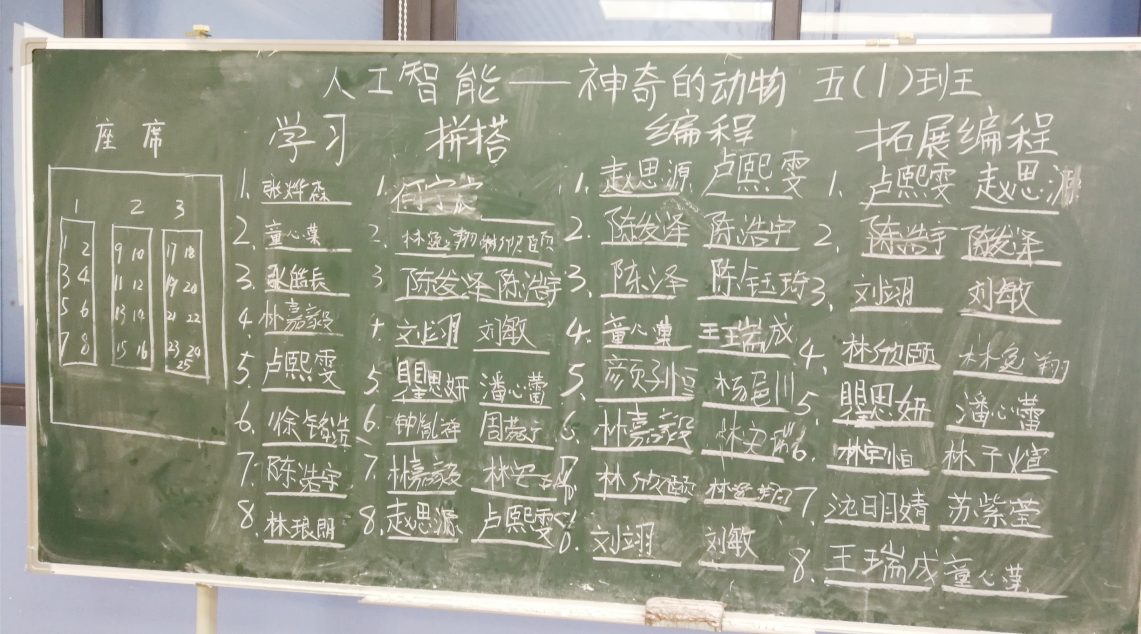 人工智能——神奇的动物 五(1)班
座席
1 2 3
1 2 9 10 17 18
3 4 11 12 19 20
5 6 13 14 21 22
7 8 15 16 23 24
25
学习
1. 张烨森
2. 童心蕖
3.
4. 林嘉毅
5. 卢熙雯
6. 徐铭浩
7. 陈浩宇
8. 林琅朗
拼搭
1. 何宇宸
2. 林逸翔 林欣颐
3 陈俊泽 陈浩宇
4 刘翊 刘敏
5. 瞿思妍 潘心蕾
6. 钟胤祥
7. 林嘉毅 林安
8. 赵思源 卢熙雯
编程
1. 赵思源 卢熙雯
2. 陈俊泽 陈浩宇
3. 陈泽 陈钰琦
4. 童心蕖 王瑞成
5. 颜子恒 杨邑川
6. 林嘉毅 林安
7 林欣颐 林逸翔
8. 刘翊 刘敏
拓展编程
1. 卢熙雯 赵思源
2. 陈浩宇 陈俊泽
3. 刘翊 刘敏
4. 林欣颐 林逸翔
5. 瞿思妍 潘心蕾
6. 林宇恒 林子煊
7. 沈明婧 苏紫莹
8. 王瑞成 童心蕖